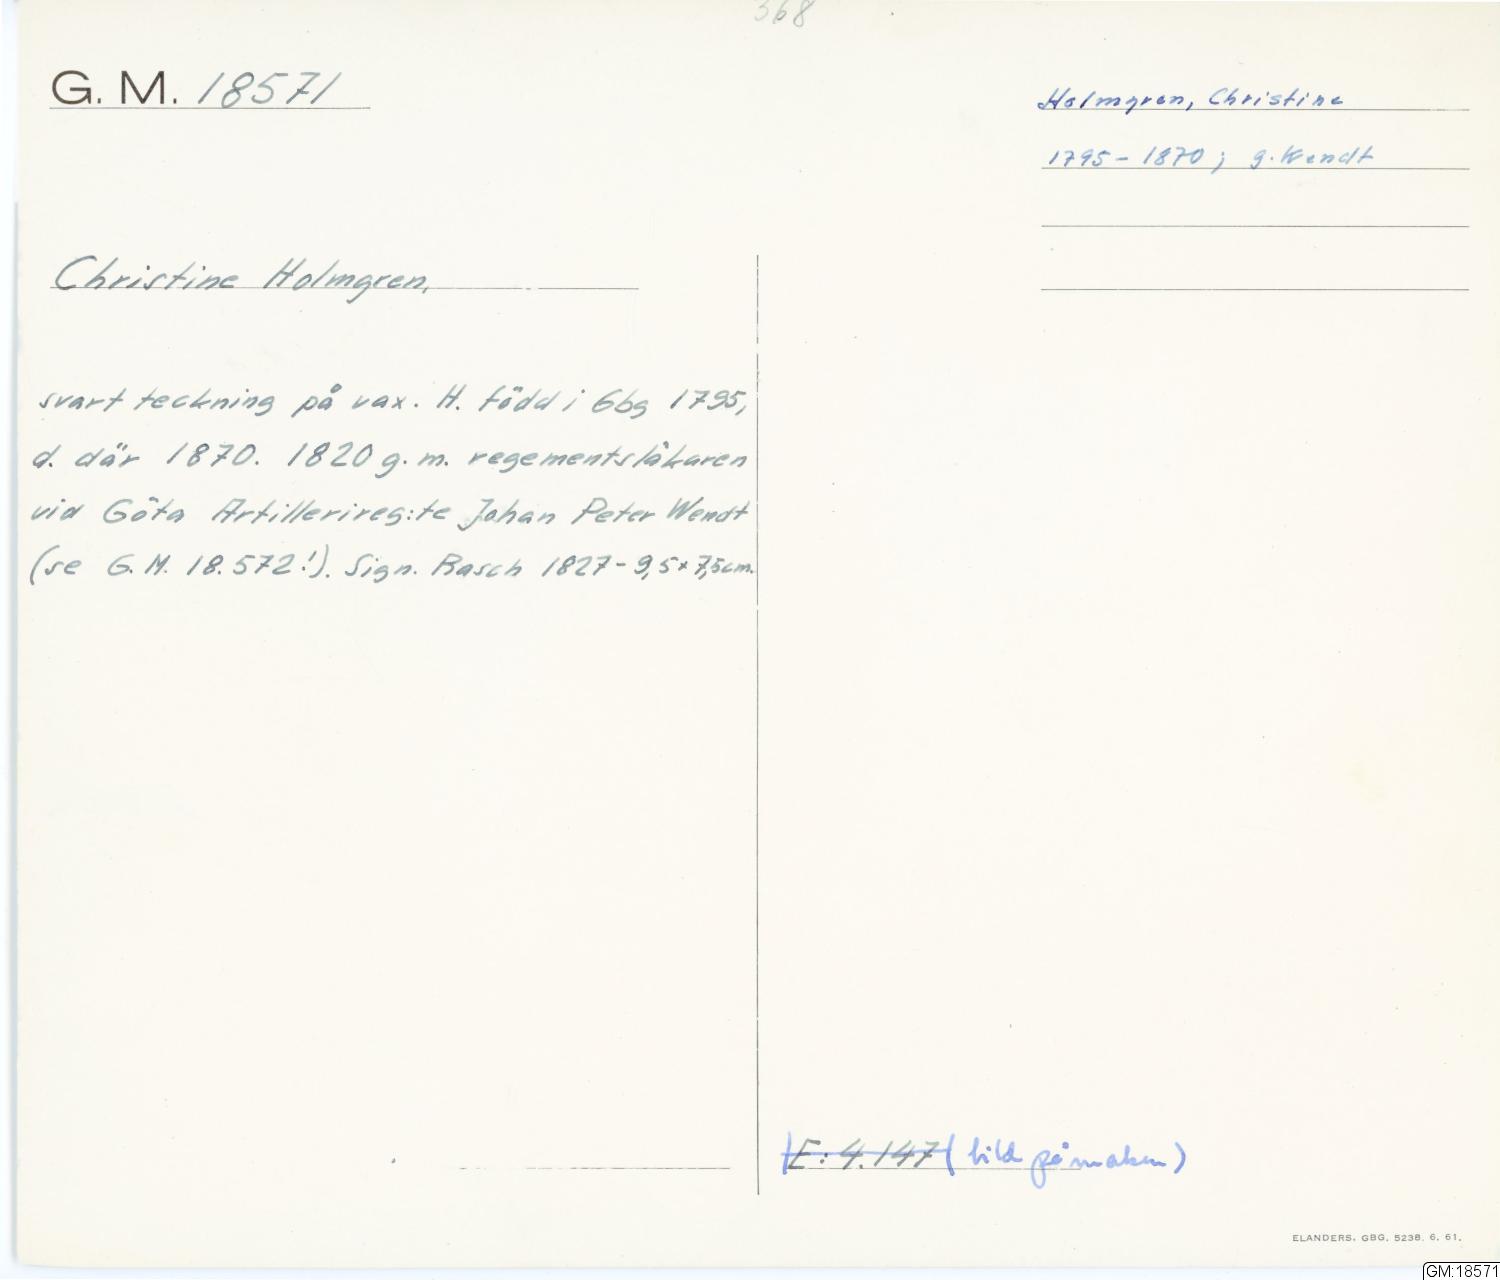 368
G. M. 18571
Holmgren, Christine
1795 - 1870 ; g. Wendt
Christine Holmgren.
svart teckning på vax. H. född i Gbg 1795,
d. där 1870. 1820 g. m. regementsläkaren
vid Göta Artillerireg:te Johan Peter Wendt
(se G. M. 18.572!). Sign. Rasch 1827 - 9,5 x 7,5 cm.
E: 4.147 (bild på maken)
ELANDERS, GBG, 5238. 6. 61.
GM:18571